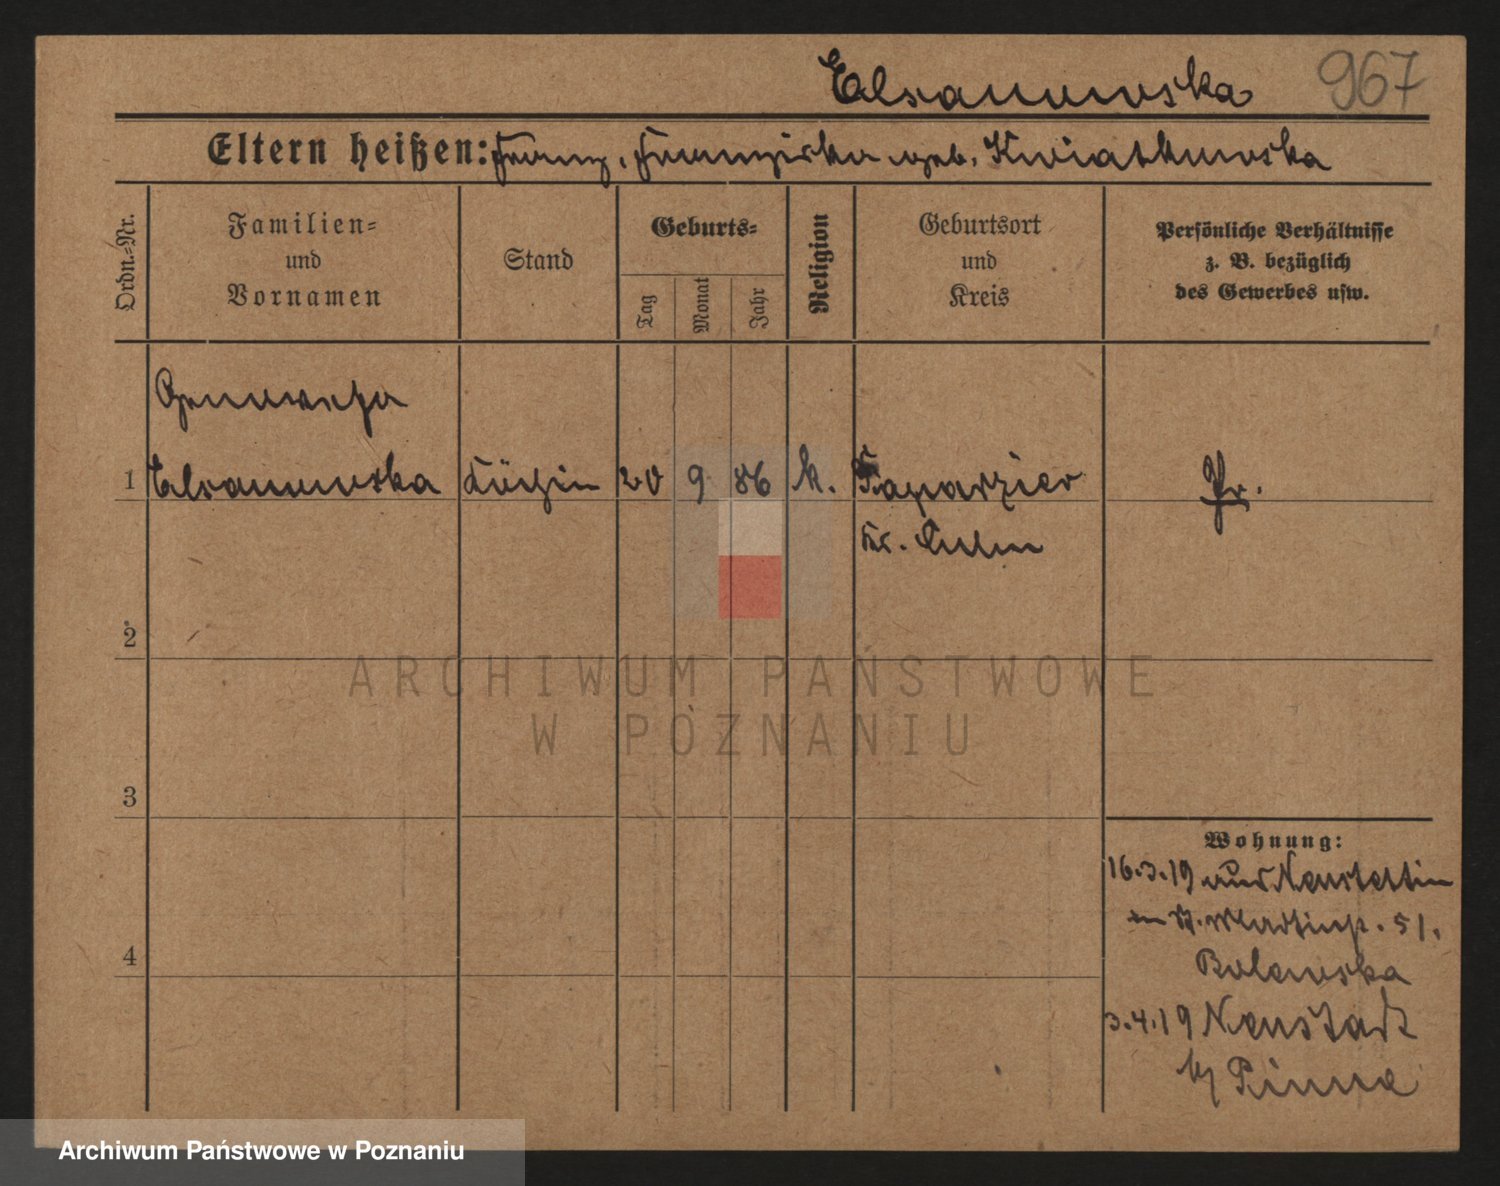 Elsanowska 967
Eltern heißen: Franz, Franziska geb. Kwiatkowska
Ordn.-Nr.
Familien-
und
Vornamen
Stand
Geburts-
Tag
Monat
Jahr
Religion
Geburtsort
und
Kreis
Persönliche Verhältnisse
z. B. bezüglich
des Gewerbes usw.
Genowefa
1 Elsanowska Köchin 20 9 86 k. Paparzier
Kr. Culm
2
ARCHIWUM PAŃSTWOWE
W POZNANIU
3
Wohnung:
16.3.19 aus Neustettin
St. Martinstr. 51.
4
Bolewska
3.4.19 Neustadt
Pinne
Archiwum Państwowe w Poznaniu